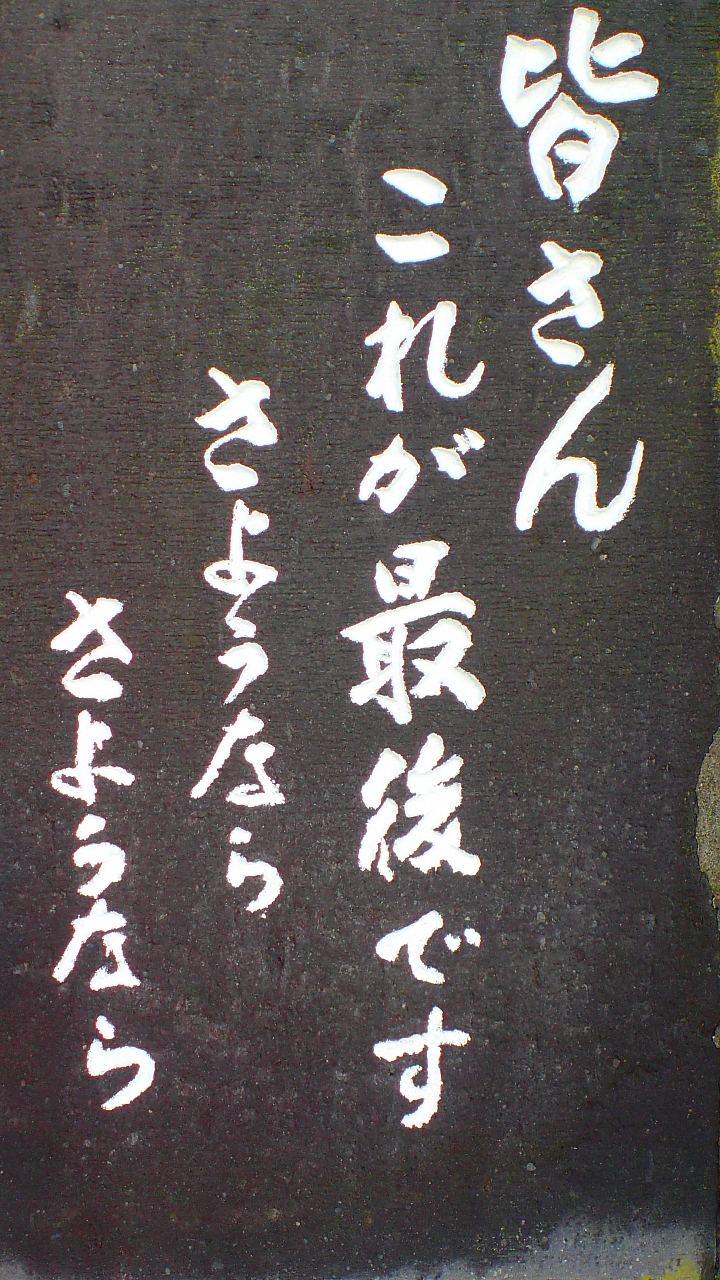 皆さん
これが最後です
さようなら
さようなら